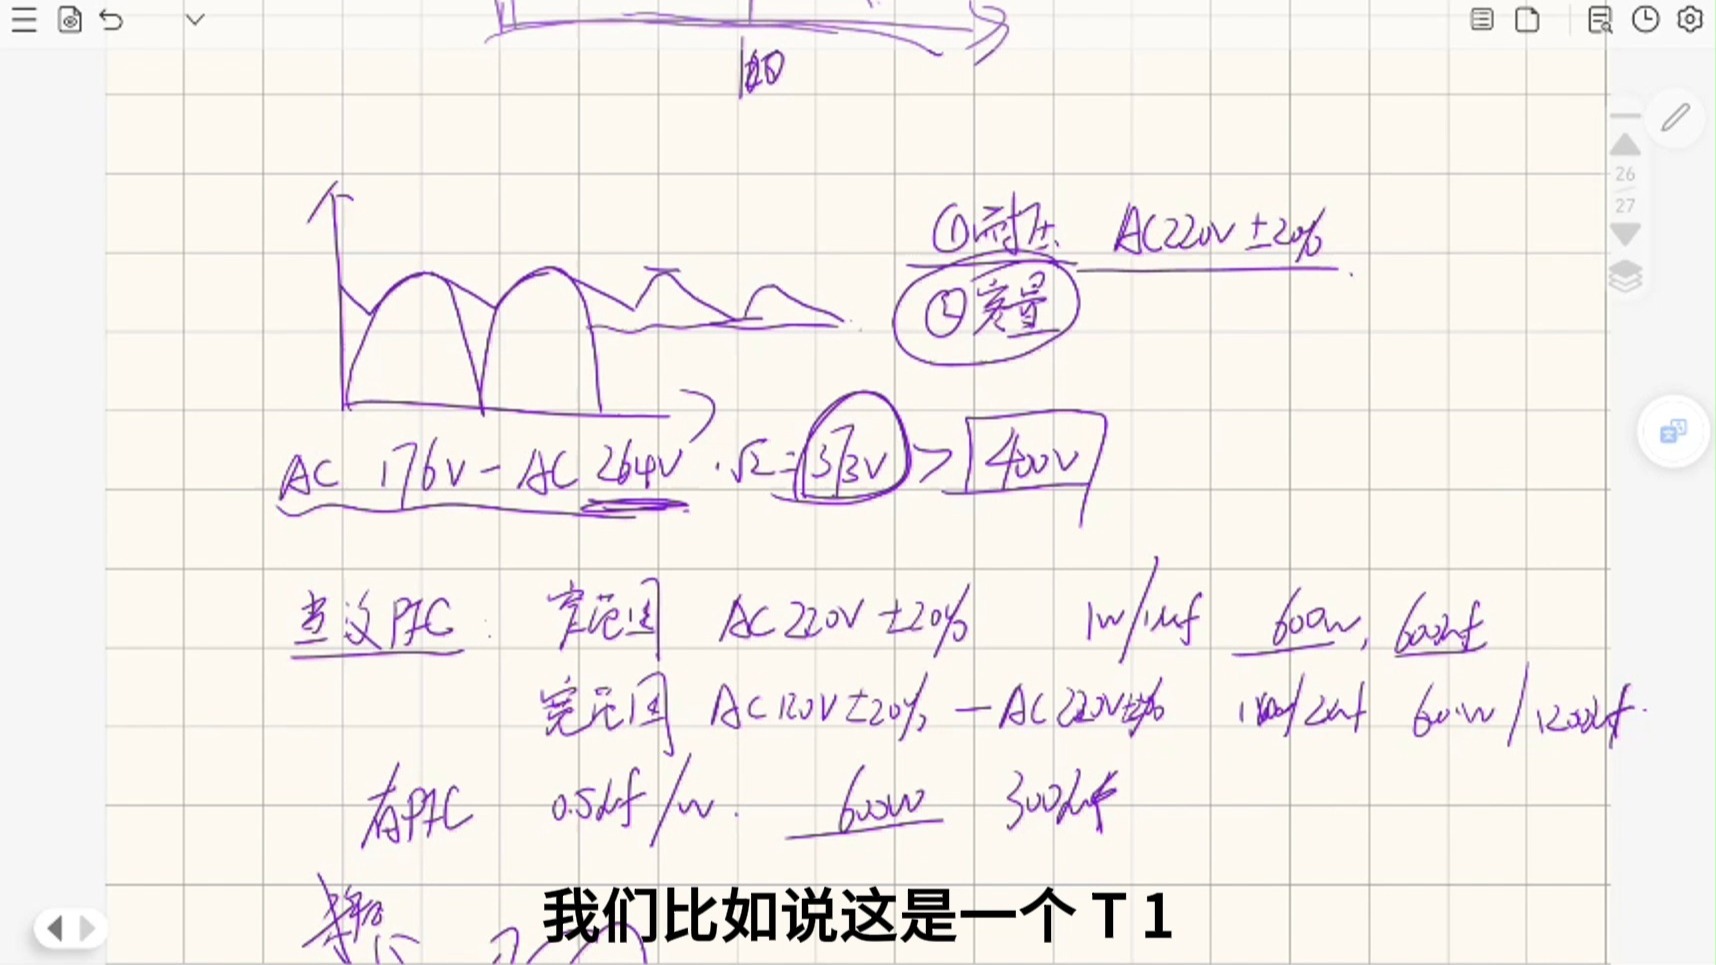 ①耐压 AC220V ±20%
②容量
AC 176V - AC 264V · √2 = 373V > 400V
26
27
PFC: 窄范围 AC220V ±20% 1W/1uf 600W, 600uf
宽范围 AC120V±20% — AC220V±20% 600W/1200uf
有PFC 0.5uf/w. 600W 300uf
我们比如说这是一个T1